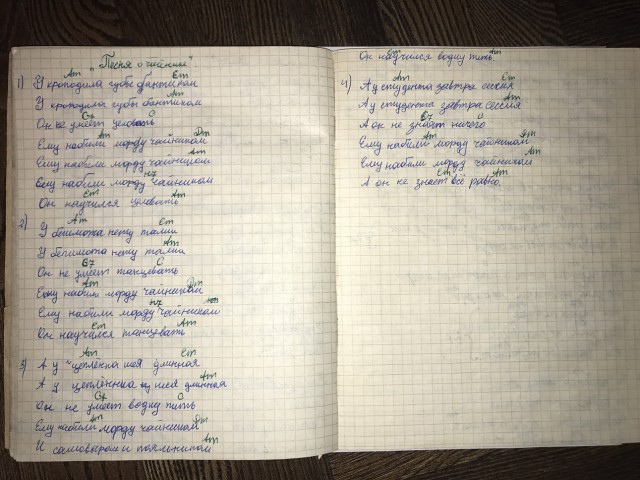 "Песня о чайнике"
Am Em
1) У крокодила губы бантиком
Am
У крокодила губы бантиком
G7 C
Он не умеет целовать
Am Dm
Ему набили морду чайником
Am
Ему набили морду чайником
H7
Ему набили морду чайником
Em Am
Он научился целовать
Am Em
2) У бегемота нету талии
Am
У бегемота нету талии
G7 C
Он не умеет танцевать
Am Dm
Ему набили морду чайником
H7 Am
Ему набили морду чайником
Em Am
Он научился танцевать
Am Em
3) А у цыплёнка шея длинная
Am
А у шея длинная
G7 C
Он не умеет водку пить
Am Dm
Ему набили морду чайником
Am
И самоваром и паяльником
Em Am
Он научился водку пить.
Am Em
4) А у студента завтра сессия
Am
А у студента завтра сессия
G7 C
А он не знает ничего
Am Dm
Ему набили морду чайником
Am
Ему набили морду чайником
Em Am
А он не знает всё равно.